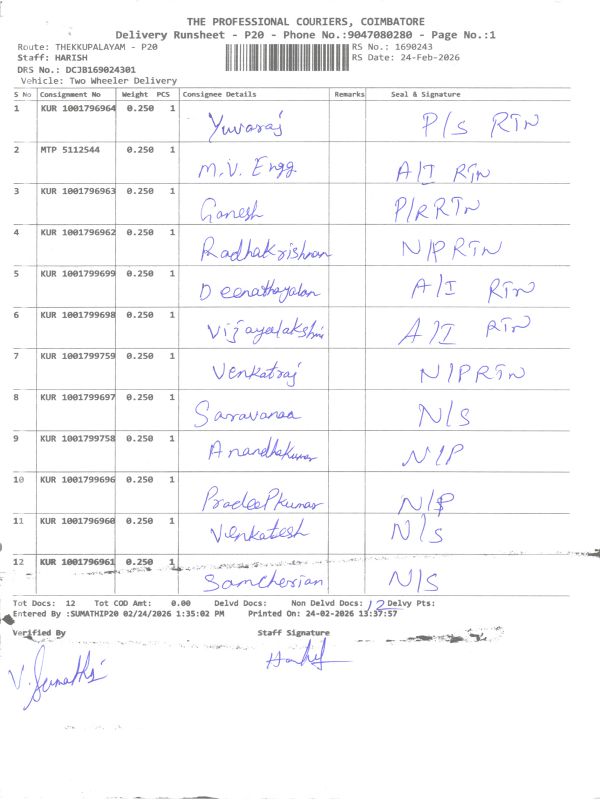 THE PROFESSIONAL COURIERS, COIMBATORE
Delivery Runsheet - P20 - Phone No.:9047080280 - Page No.:1
Route: THEKKUPALAYAM - P20 RS No.: 1690243
Staff: HARISH RS Date: 24-Feb-2026
DRS No.: DCJB169024301
Vehicle: Two Wheeler Delivery
S No Consignment No Weight PCS Consignee Details Remarks Seal & Signature
1 KUR 1001796964 0.250 1 Yuvaraj P/S RTN
2 MTP 5112544 0.250 1 M.V. Engg. A/I RTN
3 KUR 1001796963 0.250 1 Ganesh P/R RTN
4 KUR 1001796962 0.250 1 Radhakrishnan N/P RTN
5 KUR 1001799699 0.250 1 Deenathayalan A/I RTN
6 KUR 1001799698 0.250 1 Vijayalakshmi A/I RTN
7 KUR 1001799759 0.250 1 Venkatraj N/P RTN
8 KUR 1001799697 0.250 1 Saravanaa N/S
9 KUR 1001799758 0.250 1 Anandhakumar N/P
10 KUR 1001799696 0.250 1 PradeePkumar N/P
11 KUR 1001796960 0.250 1 Venkatesh N/S
12 KUR 1001796961 0.250 1 Samcherian N/S
Tot Docs: 12 Tot COD Amt: 0.00 Delvd Docs: Non Delvd Docs: 12 Delvy Pts:
Entered By :SUMATHIP20 02/24/2026 1:35:02 PM Printed On: 24-02-2026 13:37:57
Verified By Staff Signature
V. Sumathi